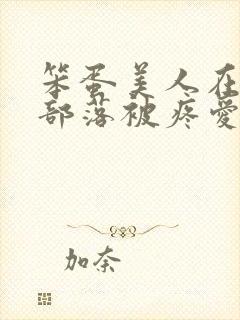 笨蛋美人在
部落被疼爱
加奈